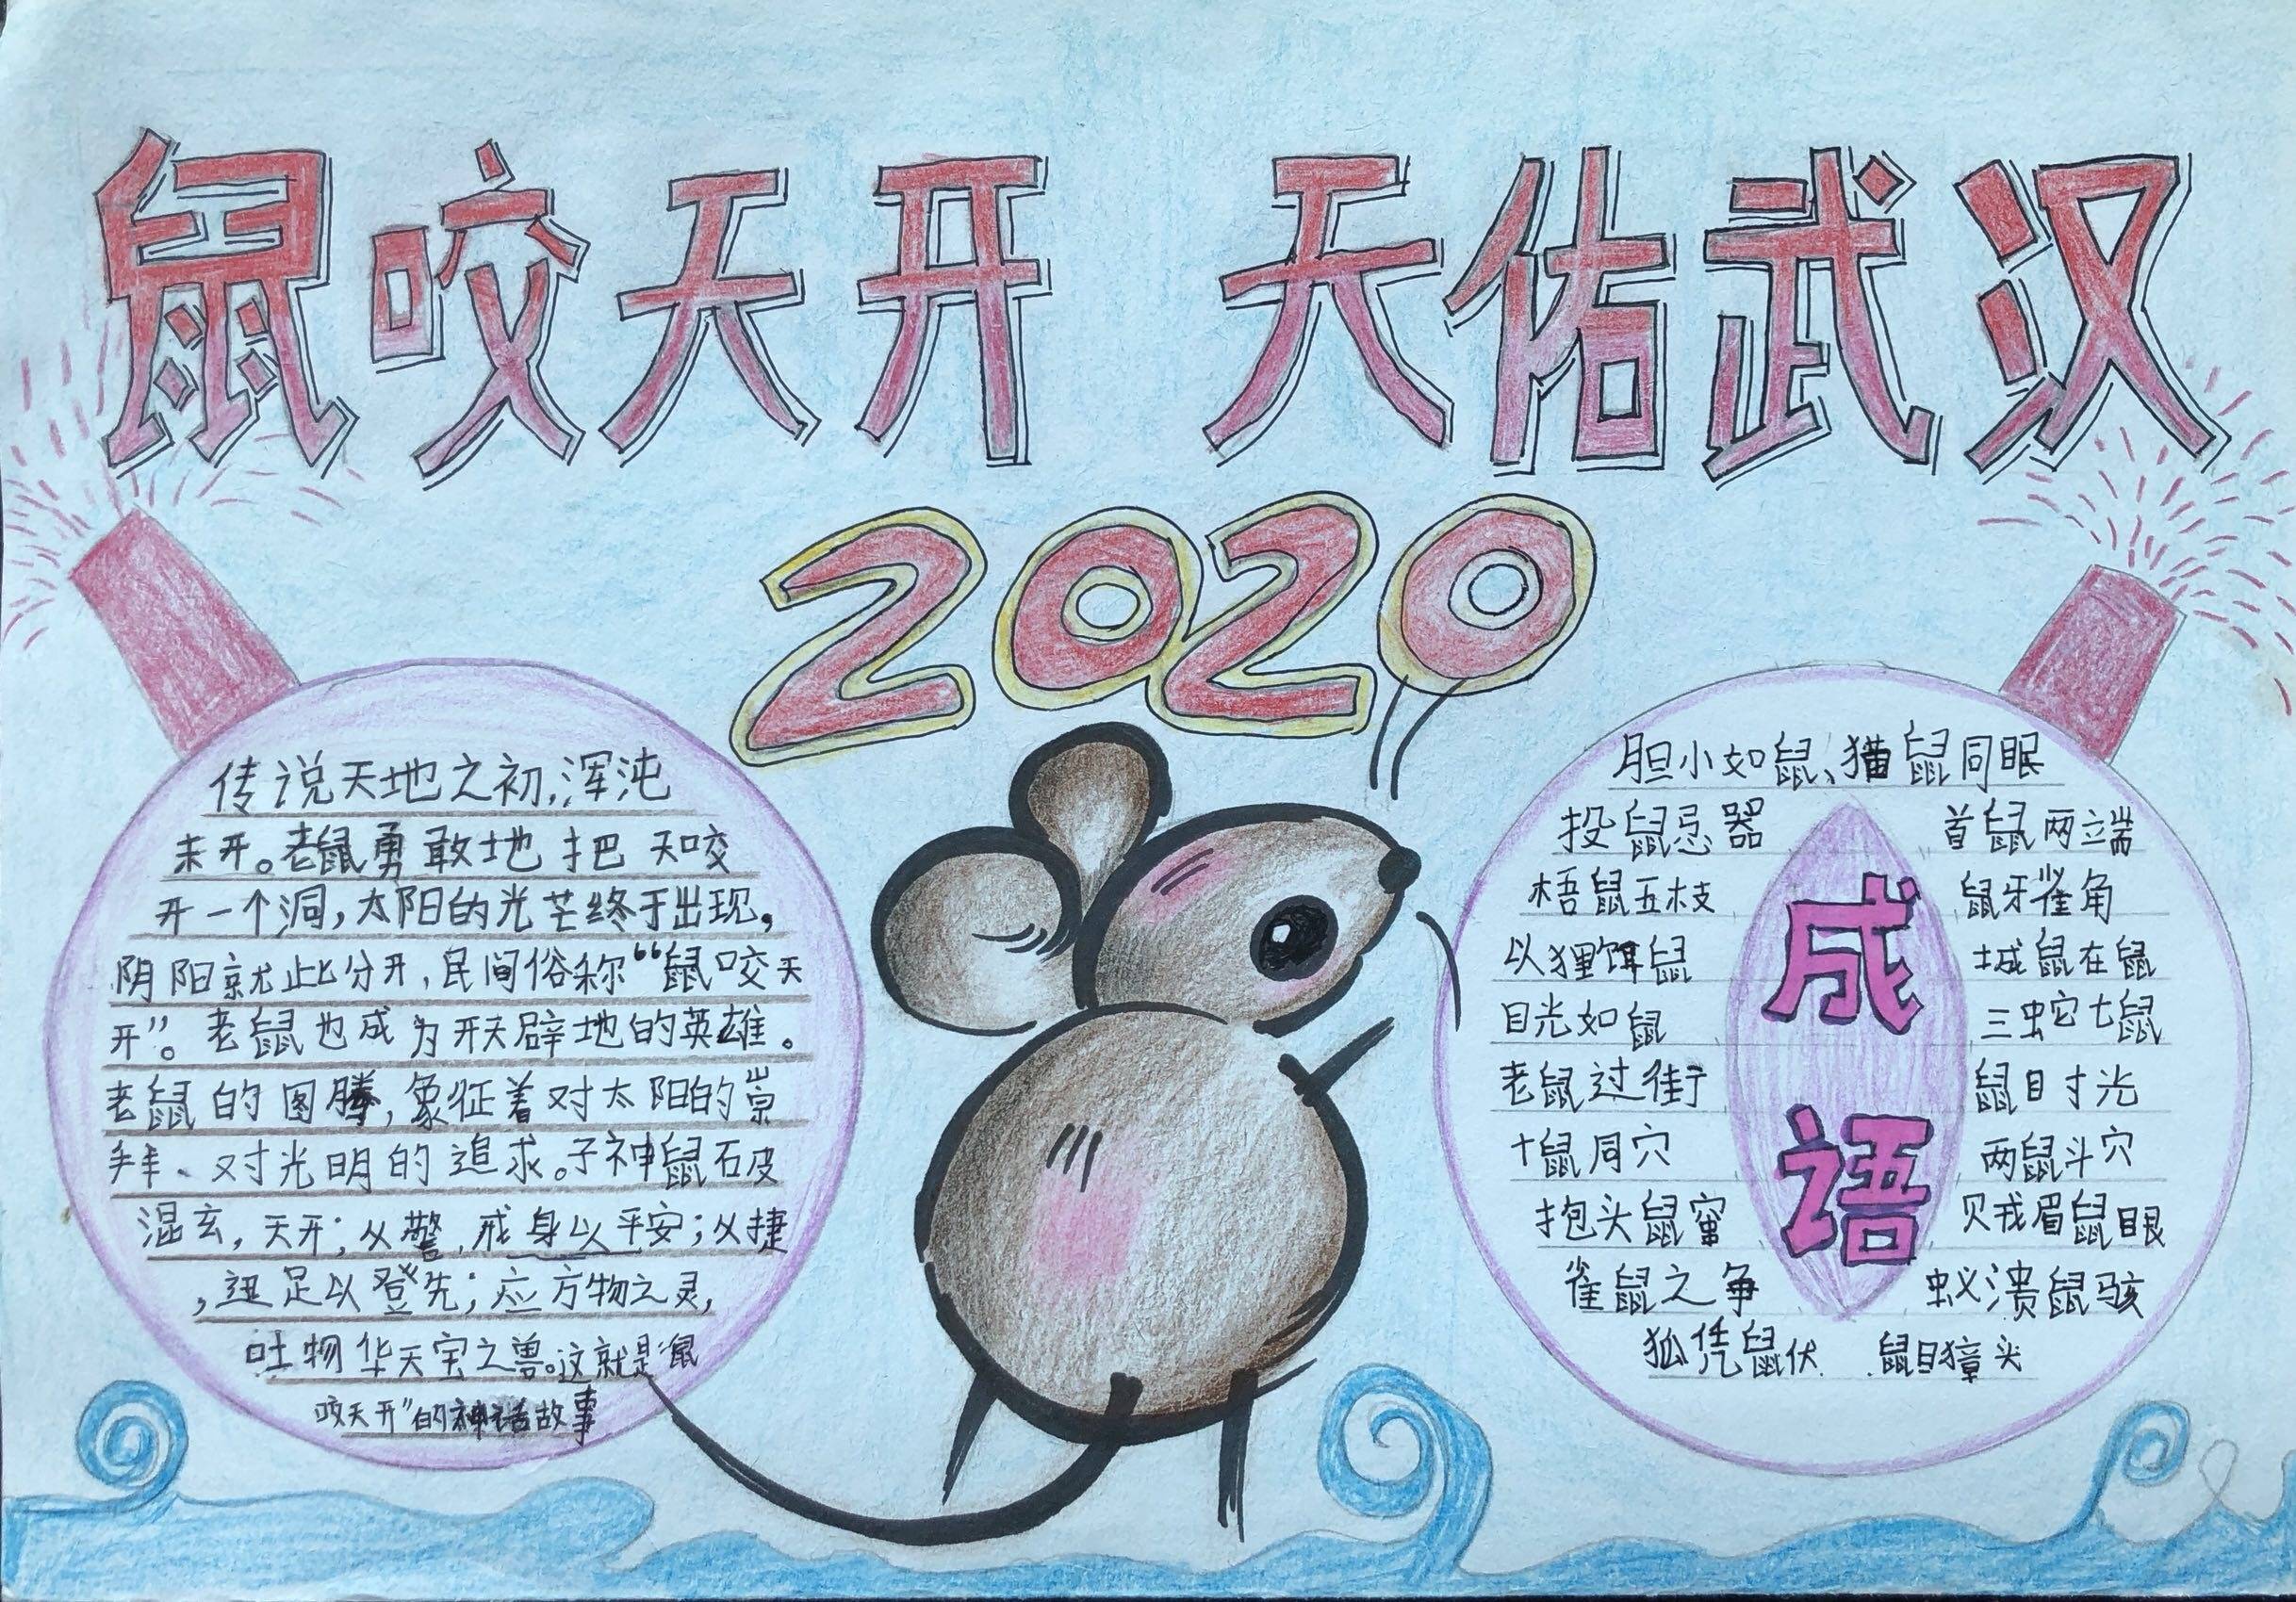 鼠咬天开 天佑武汉
2020
传说天地之初,浑沌
未开。老鼠勇敢地把天咬
开一个洞,太阳的光芒终于出现,
阴阳就此分开,民间俗称“鼠咬天
开”。老鼠也成为开天辟地的英雄。
老鼠的图腾,象征着对太阳的崇
拜、对光明的追求。子神鼠破
混玄,天开;以警,戒身以平安;以捷
,迅足以登先;应方物之灵,
吐物华天宝之兽。这就是“鼠
咬天开”的神话故事
胆小如鼠、猫鼠同眠
投鼠忌器 首鼠两端
梧鼠五枝 鼠牙雀角
以狸饵鼠 城鼠在鼠
目光如鼠 三蛇七鼠
老鼠过街 鼠目寸光
十鼠同穴 两鼠斗穴
抱头鼠窜 贼眉鼠眼
雀鼠之争 蚁溃鼠骇
狐凭鼠伏 鼠目獐头
成语